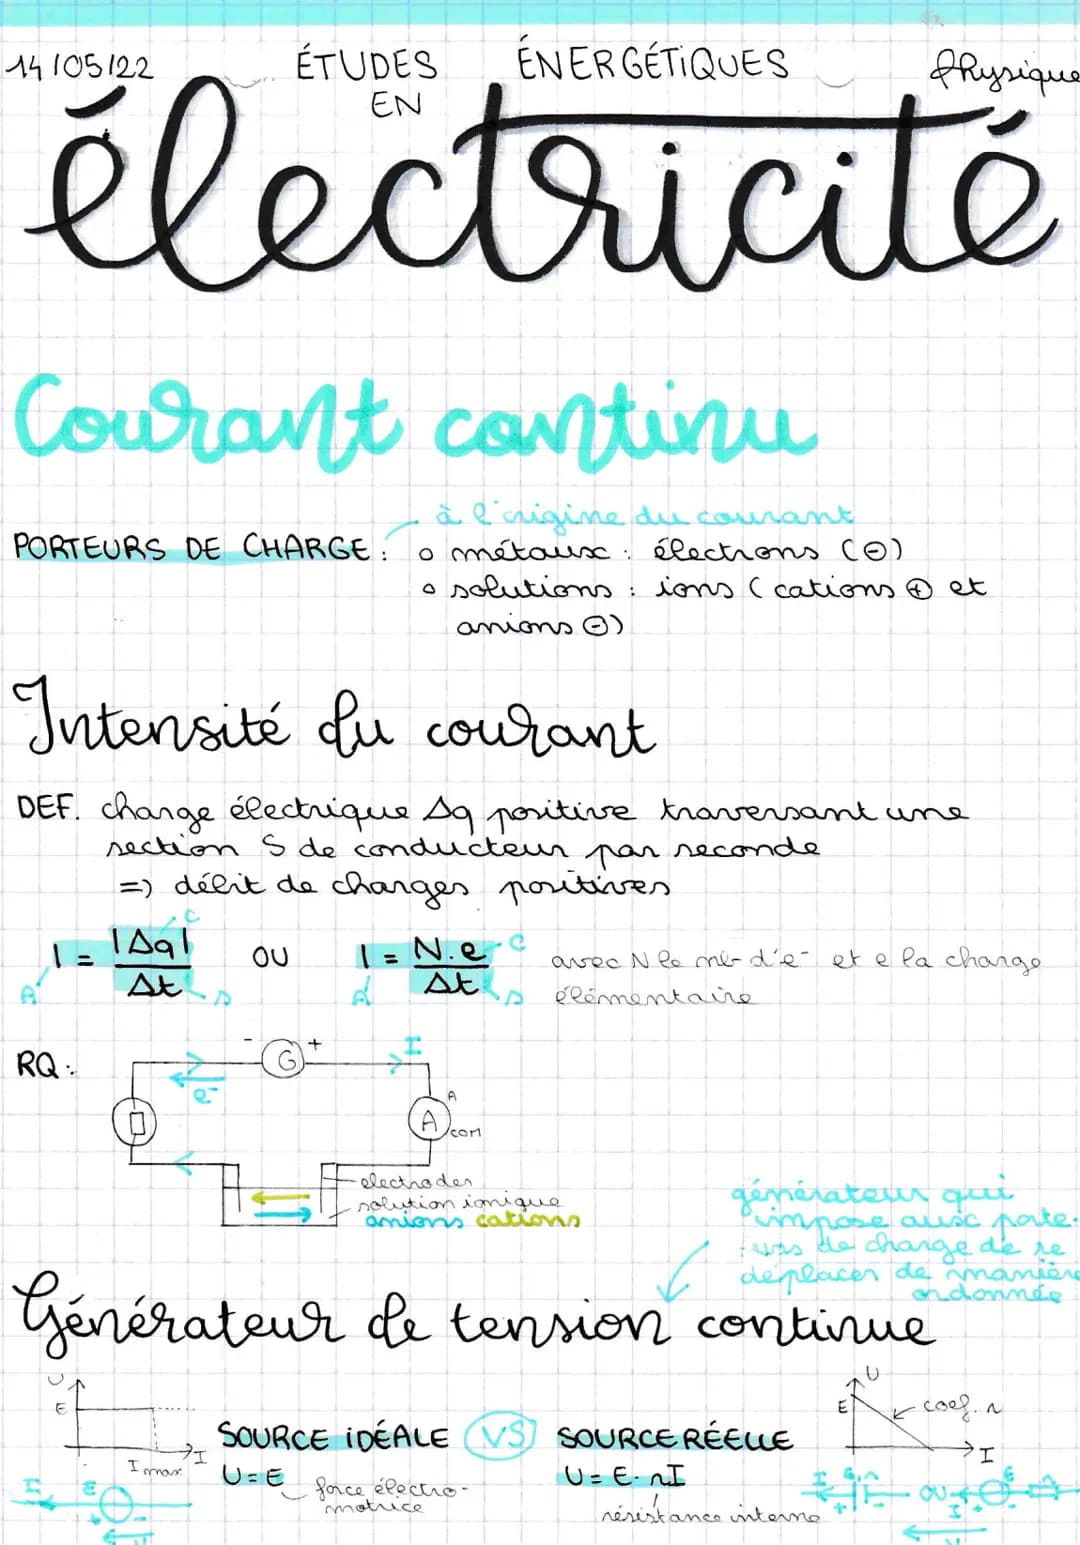 14/05/22 ÉTUDES ÉNERGÉTIQUES Physique
EN
électricité
Courant continu
à l'origine du courant
PORTEURS DE CHARGE : o métaux : électrons (⊖)
o solutions : ions (cations ⊕ et
anions ⊖)
Intensité du courant
DEF. charge électrique Δq positive traversant une
section S de conducteur par seconde
=> débit de charges positives
C
I = |Δq| / Δt OU I = N.e / Δt avec N le nbr d'e- et e la charge
A s A C s élémentaire
RQ :
- G + I
e-
A
A
com
électrodes
solution ionique
anions cations
générateur qui
impose aux porte-
urs de charge de se
déplacer de manière
ordonnée
Générateur de tension continue
U E I max I
SOURCE IDÉALE VS SOURCE RÉELLE
U E coef. r I
U = E force électro-
motrice
U = E - rI
résistance interne
I E
I E,r + - OU E
I